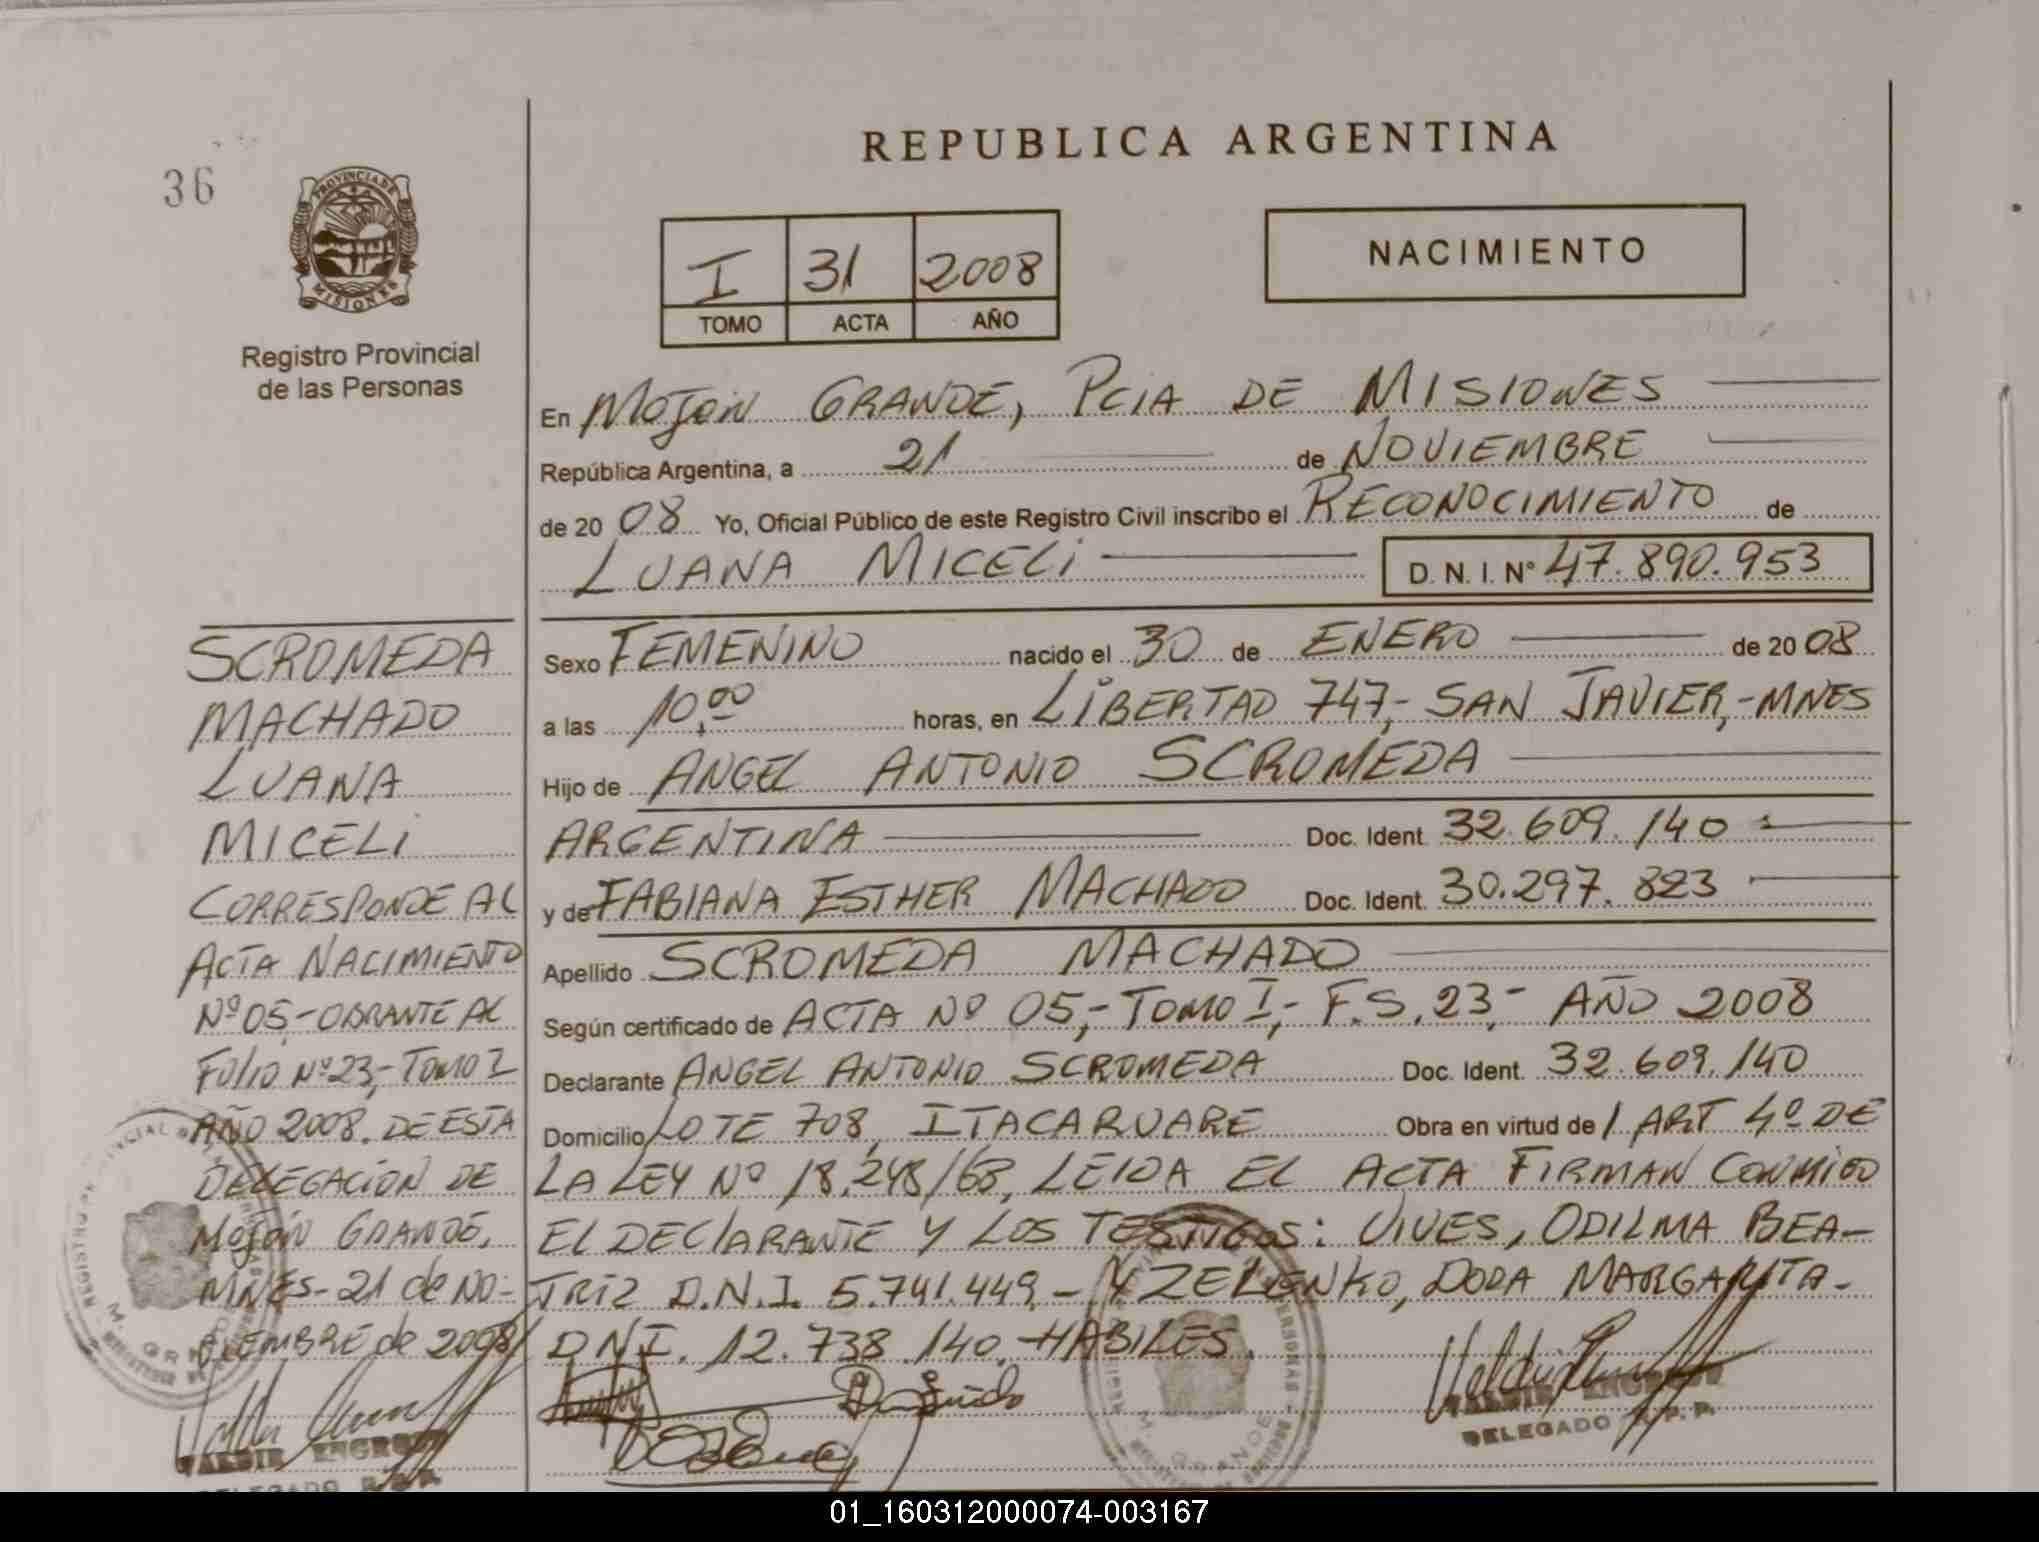 36
PROVINCIA DE
MISIONES
Registro Provincial
de las Personas
REPUBLICA ARGENTINA
I 31 2008
TOMO ACTA AÑO
NACIMIENTO
En MOJON GRANDE, PCIA DE MISIONES
República Argentina, a 21 de NOVIEMBRE
de 20 08 Yo, Oficial Público de este Registro Civil inscribo el RECONOCIMIENTO de
LUANA MICELI D. N. I. N° 47.890.953
Sexo FEMENINO nacido el 30 de ENERO de 20 08
a las 10,00 horas, en LIBERTAD 747,- SAN JAVIER,-MNES
Hijo de ANGEL ANTONIO SCROMEDA
ARGENTINA Doc. Ident. 32.609.140
y de FABIANA ESTHER MACHADO Doc. Ident. 30.297.823
Apellido SCROMEDA MACHADO
Según certificado de ACTA Nº 05,- TOMO I,- F.S. 23,- AÑO 2008
Declarante ANGEL ANTONIO SCROMEDA Doc. Ident. 32.609.140
Domicilio LOTE 708, ITACARUARE Obra en virtud de / ART 4º DE
LA LEY Nº 18.248/68, LEIDA EL ACTA FIRMAN CONMIGO
EL DECLARANTE Y LOS TESTIGOS: VIVES, ODILMA BEA-
TRIZ D.N.I. 5.741.449,- Y ZELENKO, DORA MARGARITA-
DNI. 12.738.140. HABILES.
DELEGADO R.P.P.
SCROMEDA
MACHADO
LUANA
MICELI
CORRESPONDE AL
ACTA NACIMIENTO
Nº 05,-OBRANTE AL
FOLIO Nº 23,-TOMO I
AÑO 2008. DE ESTA
DELEGACION DE
MOJÓN GRANDE,
MNES-21 de NO-
VIEMBRE de 2008/
DELEGADO R.P.P.
01_160312000074-003167